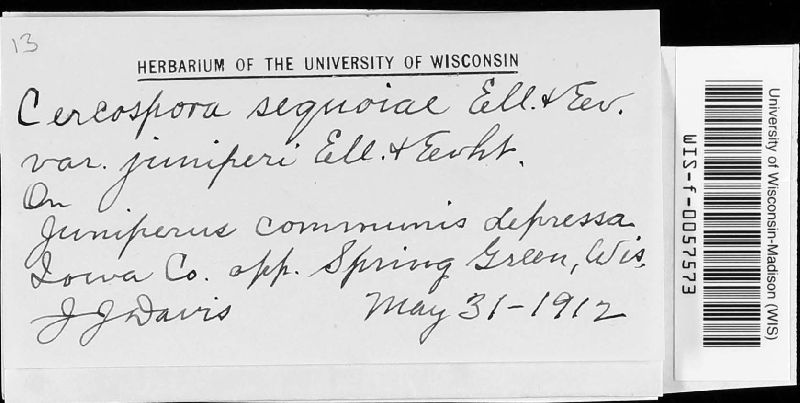 13
HERBARIUM OF THE UNIVERSITY OF WISCONSIN
Cercospora sequoiae Ell. & Ev.
var. juniperi Ell. & Evht.
On
Juniperus communis depressa
Iowa Co. opp. Spring Green, Wis.
J J Davis May 31-1912
University of Wisconsin-Madison (WIS)
WIS-f-0057573